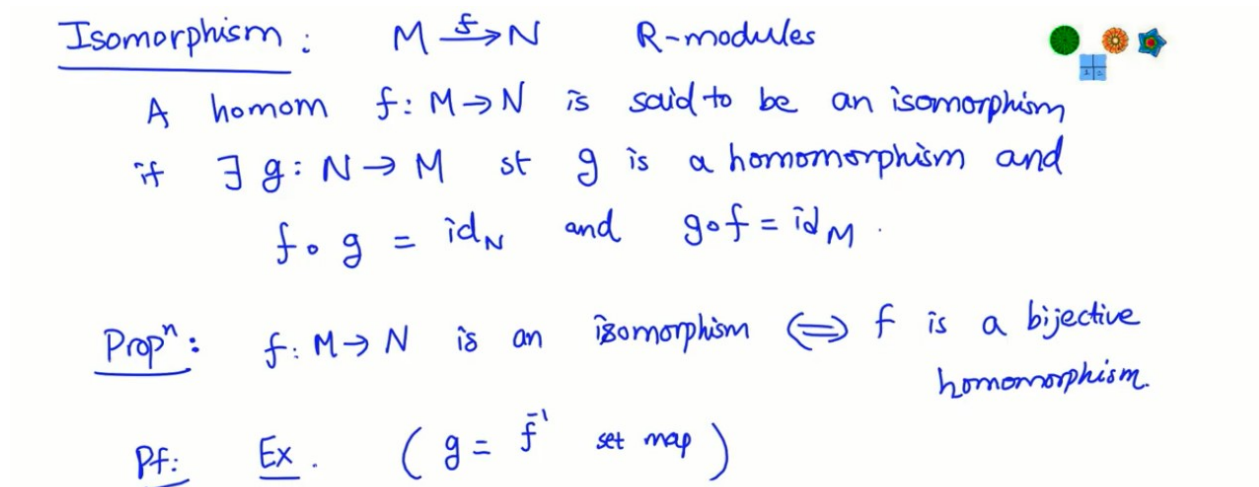 Isomorphism : M →f N R-modules
A homom f: M → N is said to be an isomorphism
if ∃ g : N → M st g is a homomorphism and
f ∘ g = id_N and g∘f = id_M .
Propⁿ : f: M → N is an isomorphism ⟺ f is a bijective
homomorphism.
Pf: Ex . ( g = f⁻¹ set map )